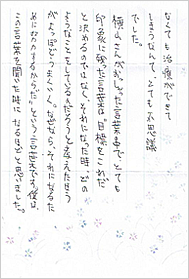 なくても治療ができて
しまうなんて、とても不思議
でした。
横山さんがおしゃった言葉の中でとても
印象に残った言葉は「目標をこれだ
と決めるのではなく、それになった時、どの
ようなことをしているんだろうと考えたほう
がよっぽどうまくいく。なぜなら、それになるた
めに努力するからだ」という言葉です。僕は、
この言葉を聞いた時になるほどと思いました。